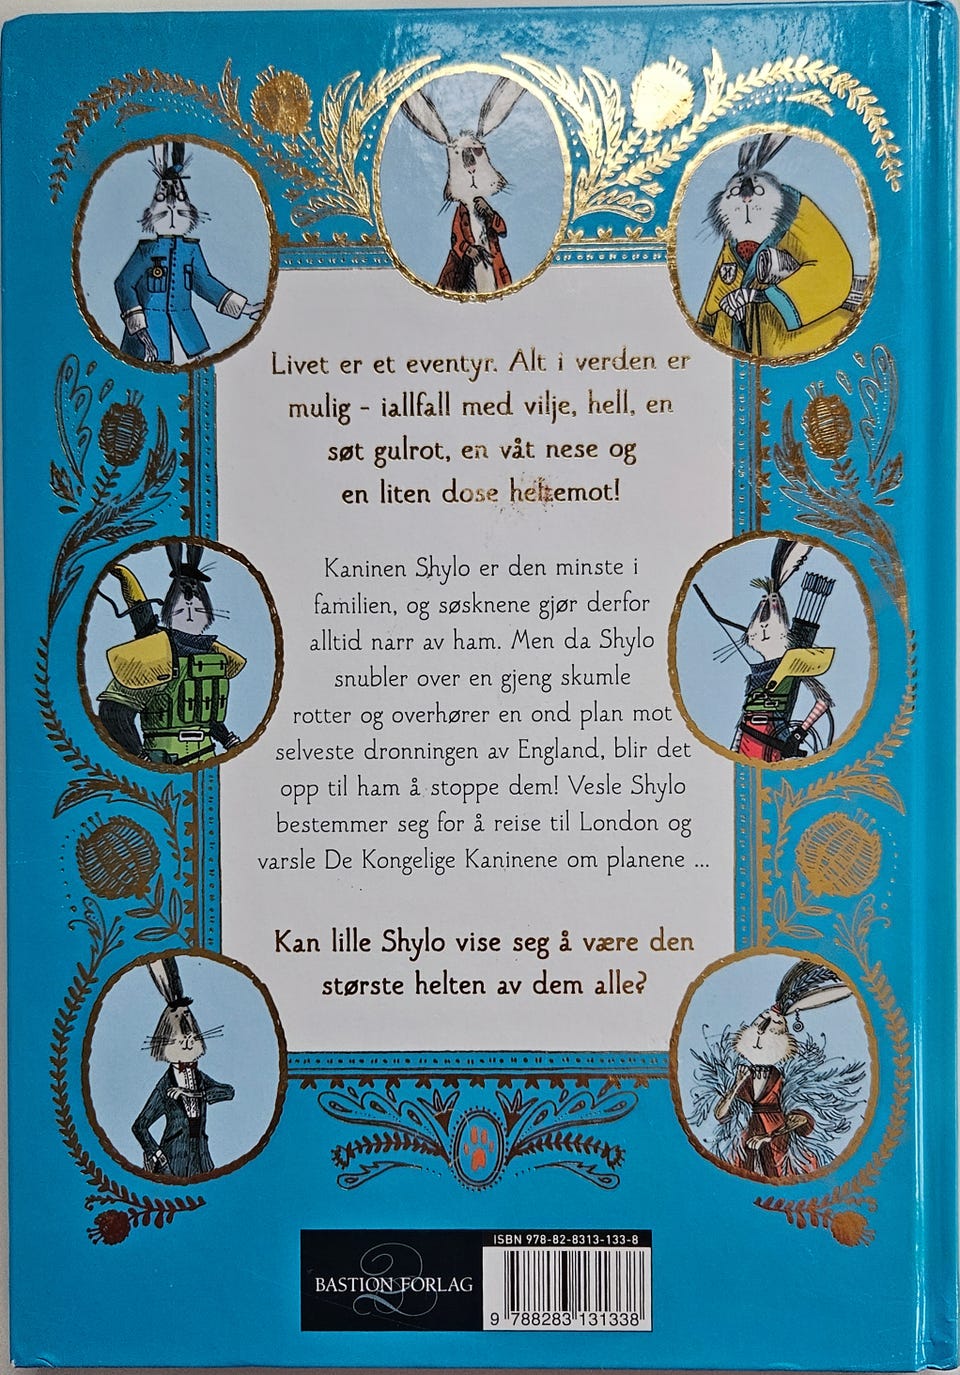 Livet er et eventyr. Alt i verden er
mulig - iallfall med vilje, hell, en
søt gulrot, en våt nese og
en liten dose heltemot!
Kaninen Shylo er den minste i
familien, og søsknene gjør derfor
alltid narr av ham. Men da Shylo
snubler over en gjeng skumle
rotter og overhører en ond plan mot
selveste dronningen av England, blir det
opp til ham å stoppe dem! Vesle Shylo
bestemmer seg for å reise til London og
varsle De Kongelige Kaninene om planene ...
Kan lille Shylo vise seg å være den
største helten av dem alle?
BASTION FORLAG
ISBN 978-82-8313-133-8
9 788283 131338